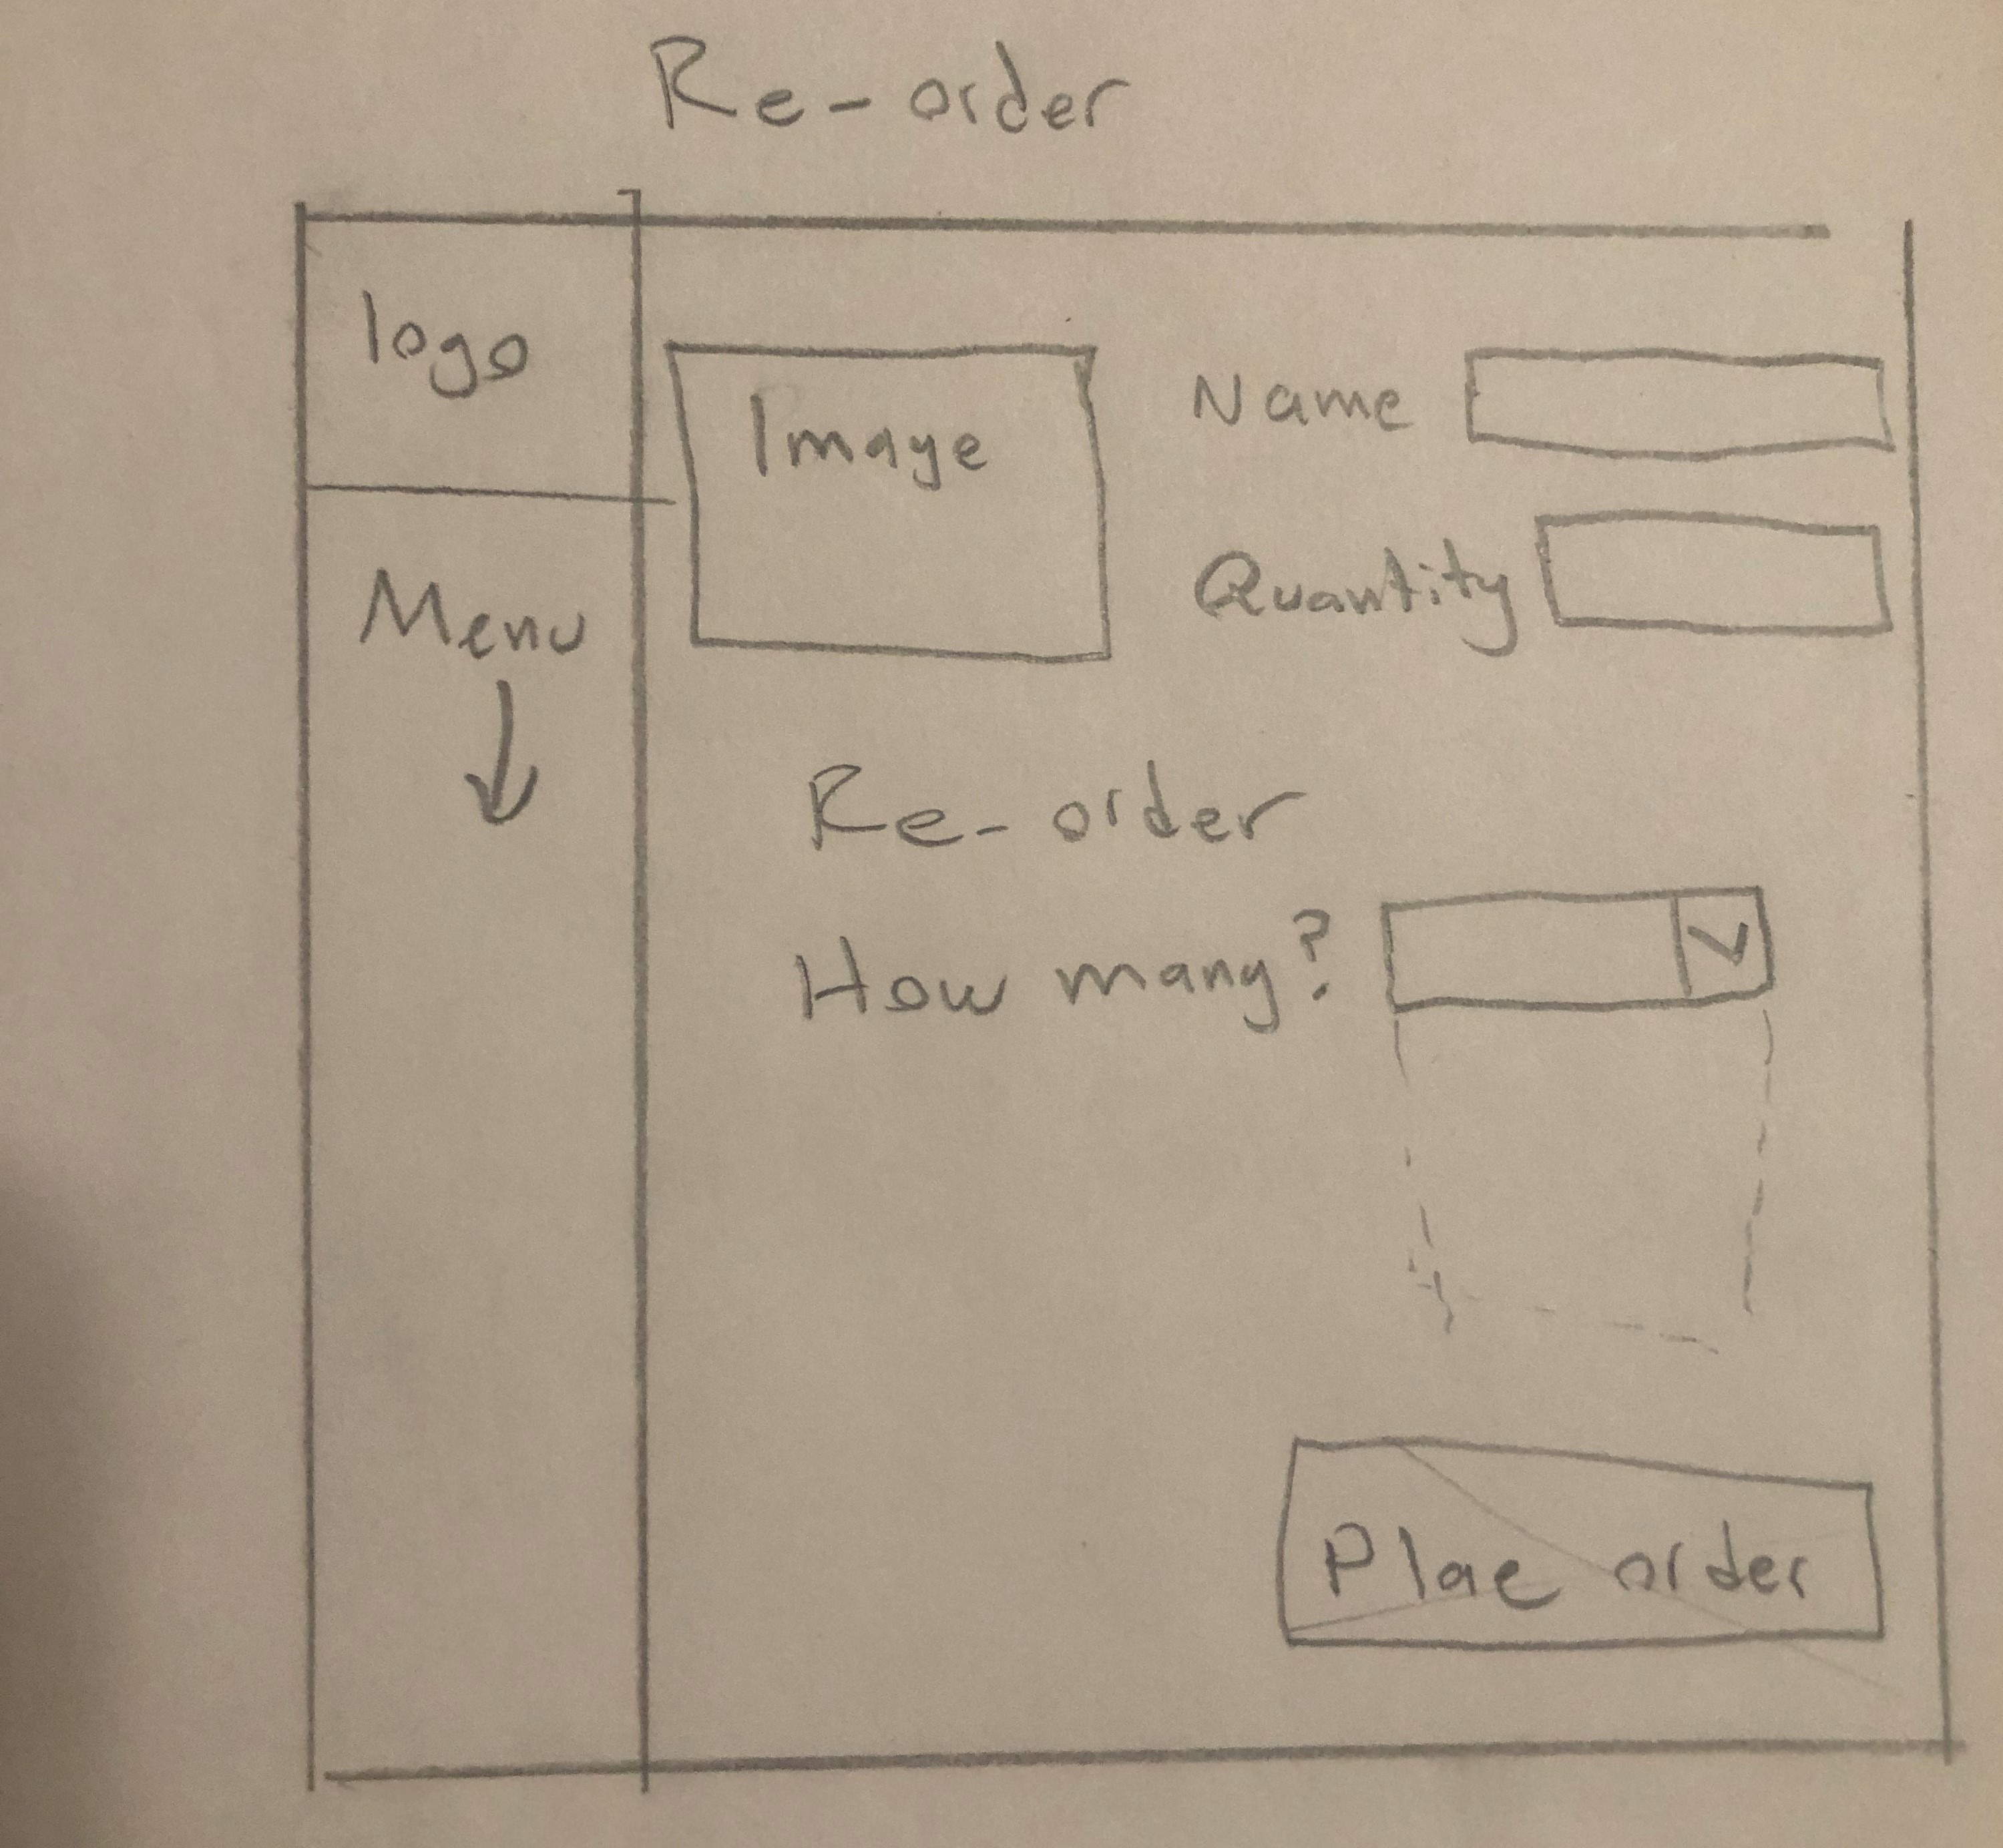 Re-order
logo
Menu
Image
Name
Quantity
Re-order
How many?
Plae order